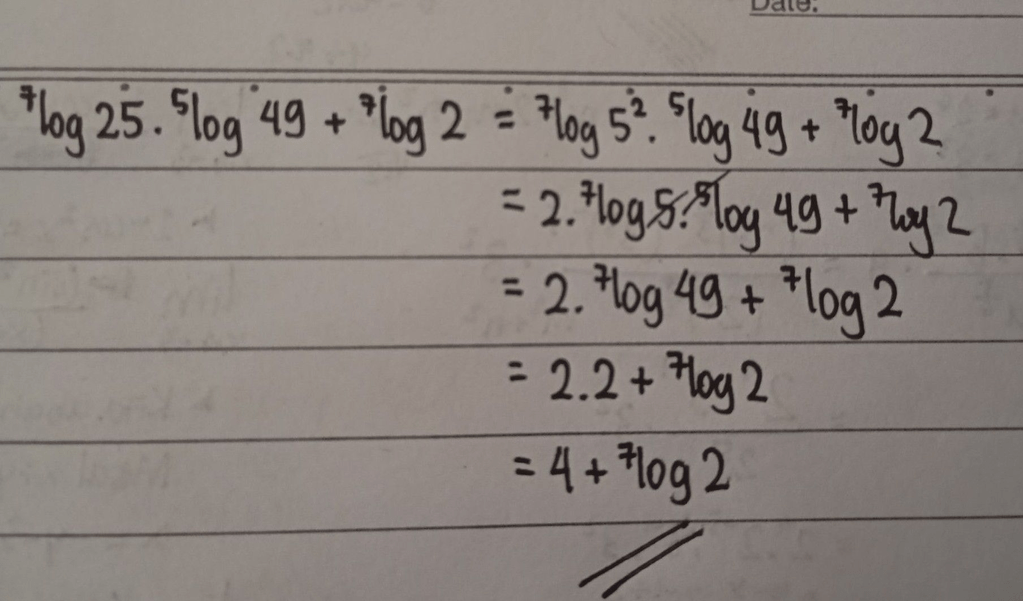 Date:
⁷log 25 . ⁵log 49 + ⁷log 2 = ⁷log 5² . ⁵log 49 + ⁷log 2
= 2 . ⁷log 5 . ⁵log 49 + ⁷log 2
= 2 . ⁷log 49 + ⁷log 2
= 2 . 2 + ⁷log 2
= 4 + ⁷log 2